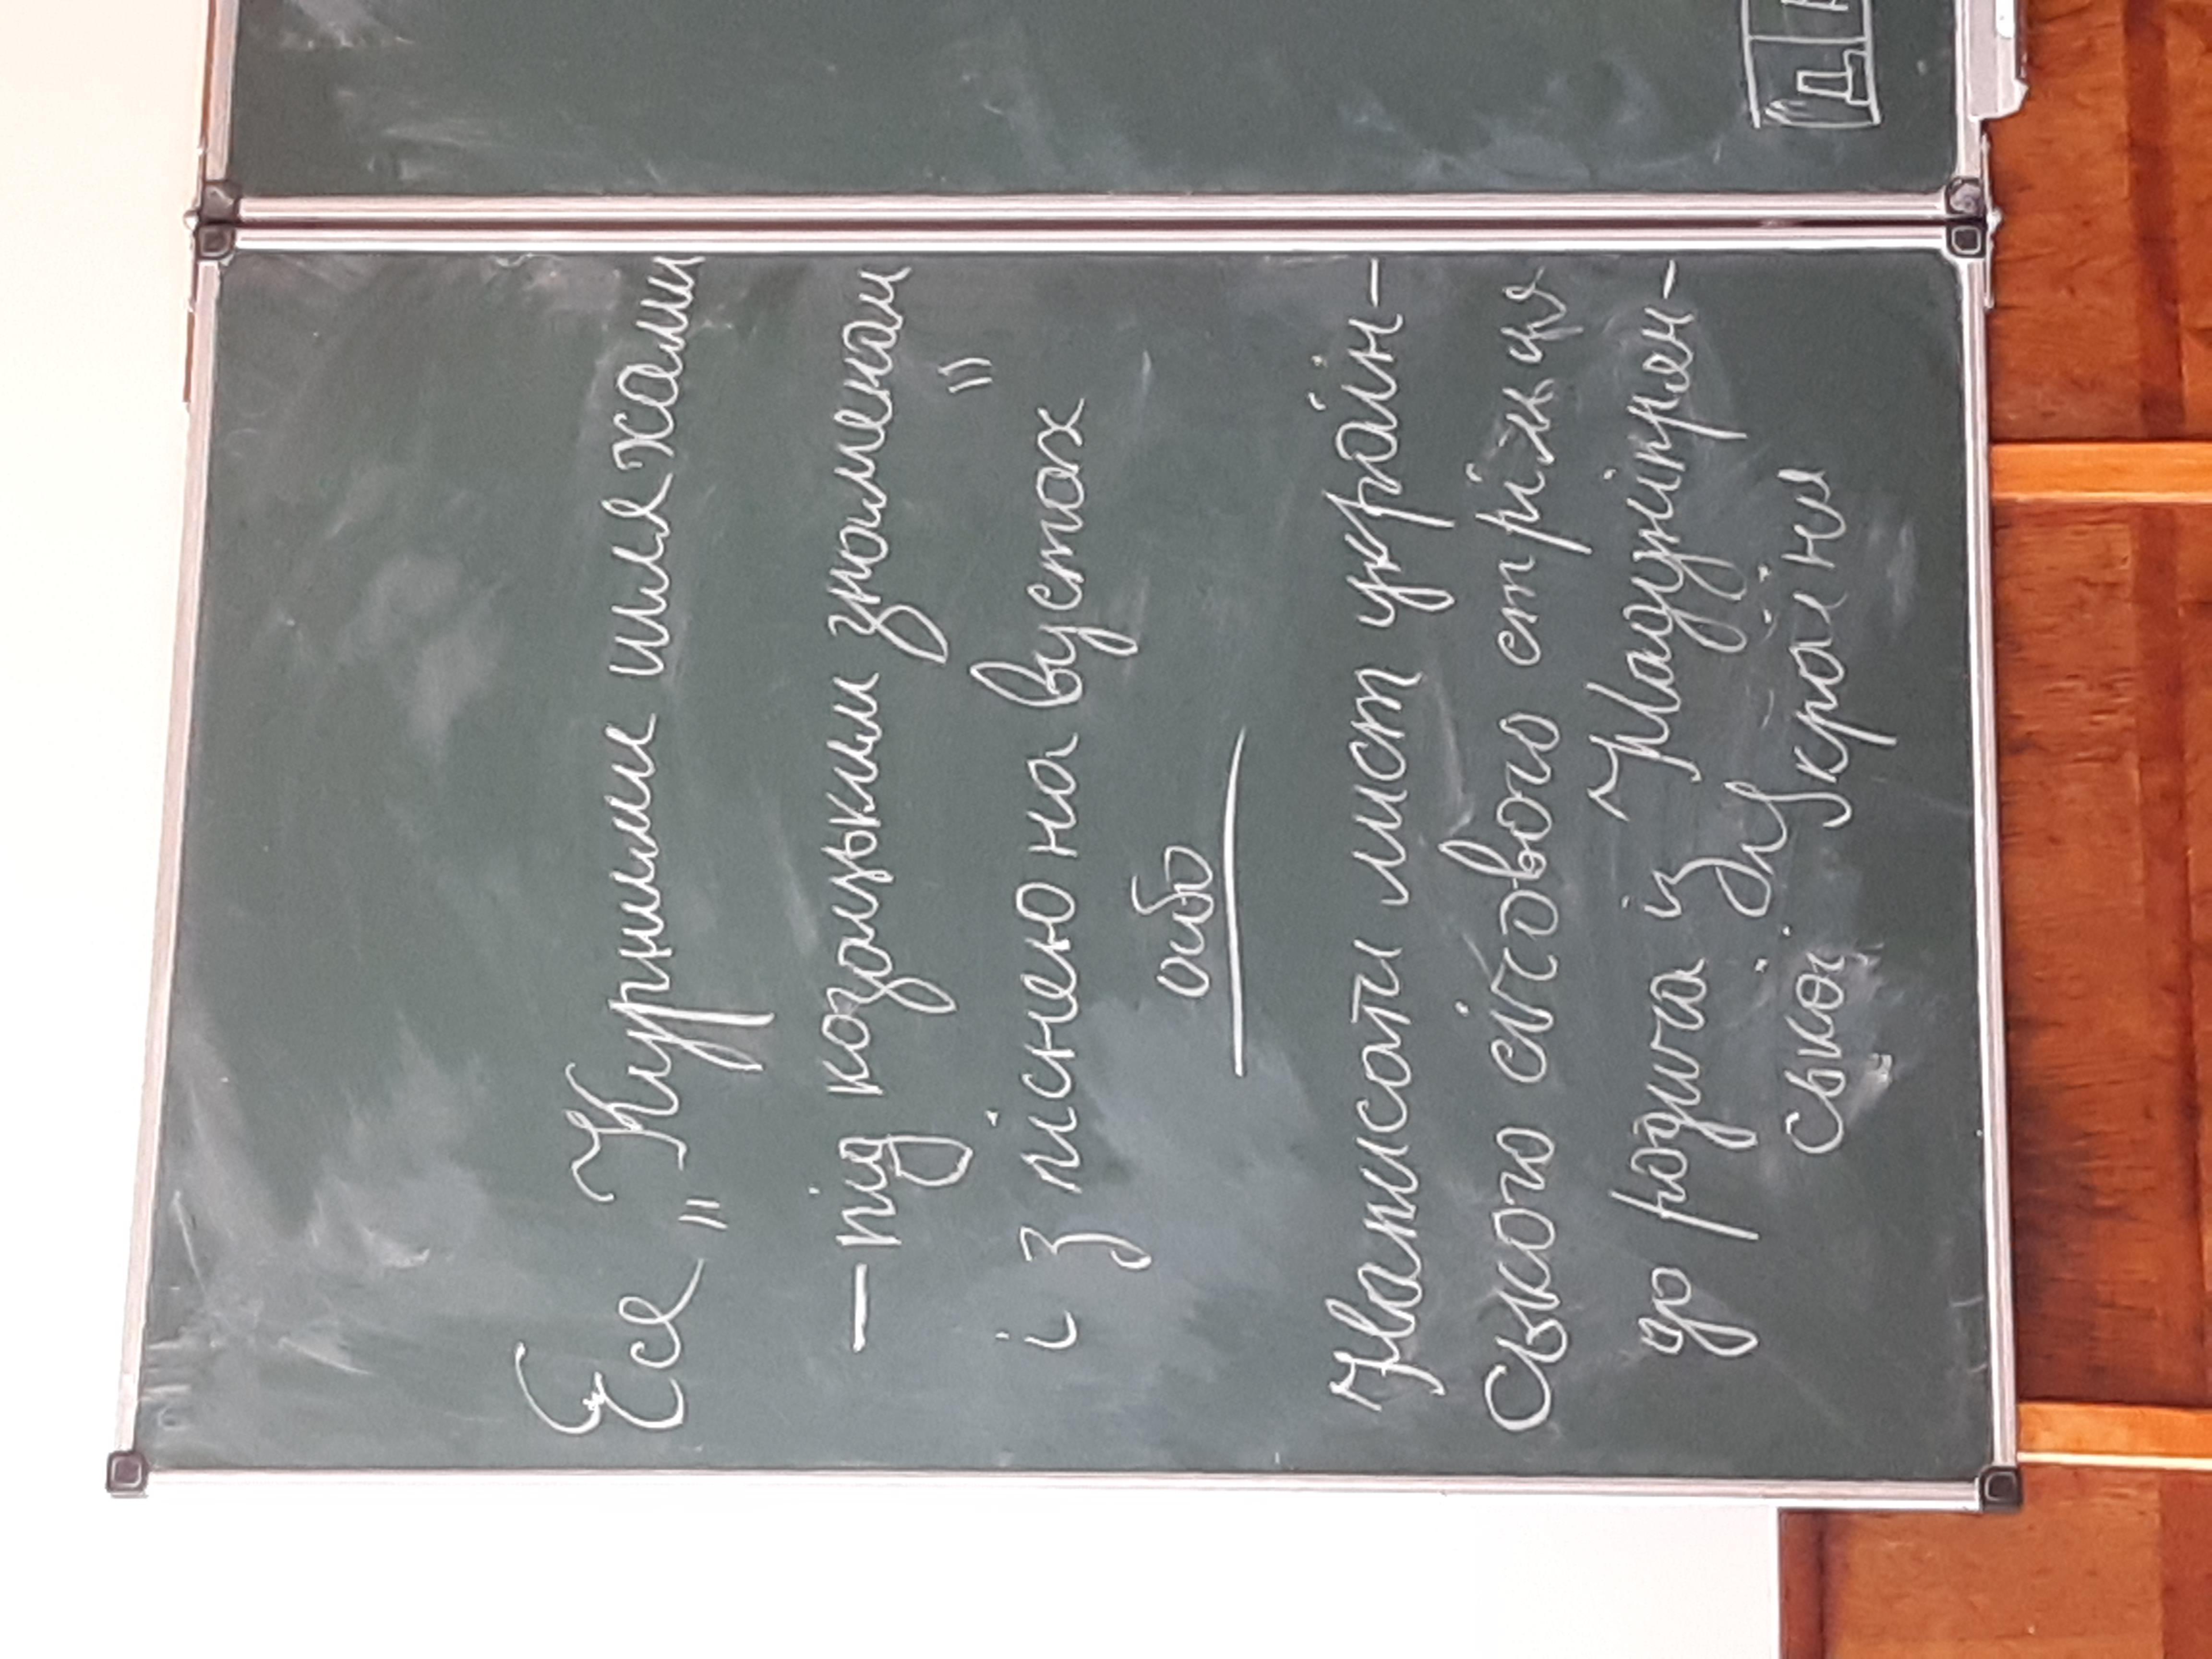 Есе „Курними шляхами
— під козацьким знаменам
і з піснею на вустах"
або
Написати лист україн-
ського січового стрільця
до родича із Наддніпрян-
ської Української